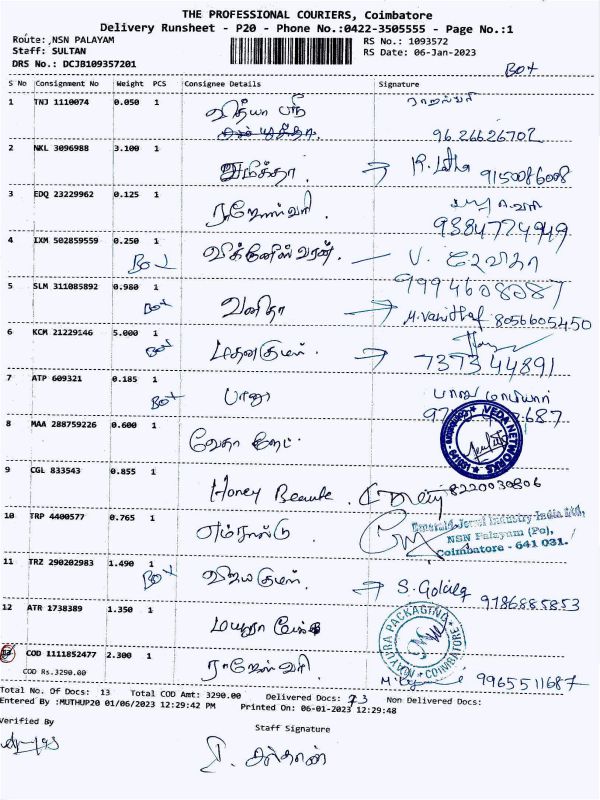 THE PROFESSIONAL COURIERS, Coimbatore
Delivery Runsheet - P20 - Phone No.:0422-3505555 - Page No.:1
Route: NSN PALAYAM RS No.: 1093572
Staff: SULTAN RS Date: 06-Jan-2023
DRS No.: DCJB109357201
Box
S No Consignment No Weight PCS Consignee Details Signature
1 TNJ 1110074 0.050 1 வித்யா ஸ்ரீ
9626626702
2 NKL 3096988 3.100 1 → R. Latha 9150086008
3 EDQ 23229962 0.125 1 ராஜேஸ்வரி
9384774949
4 IXM 502859559 0.250 1 விக்னேஸ்வரன்.
Box
5 SLM 311085892 0.980 1 வனிதா 9994608087
Box → M. Vanitha 8056605450
6 KCM 21229146 5.000 1 மதனகுமார்.
Box → 737344891
7 ATP 609321 0.185 1 பானு பானு
Box 687
VEDA NETWORKS
8 MAA 288759226 0.600 1 வேதா நெட்.
9 CGL 833543 0.855 1 Honey Beaute. 8220030806
10 TRP 4400577 0.765 1 எமரால்டு
Emerald Jewel Industry India Ltd,
NSN Palayam (Po),
Coimbatore - 641 031.
11 TRZ 290202983 1.490 1 விஜயகுமார்.
Box → 9786885853
12 ATR 1738389 1.350 1 மயூரா
MAYURA PACKAGING COIMBATORE
COD 1111852477 2.300 1 ராஜேஸ்வரி
COD Rs.3290.00 9965511687
Total No. Of Docs: 13 Total COD Amt: 3290.00 Delivered Docs: 13 Non Delivered Docs:
Entered By :MUTHUP20 01/06/2023 12:29:42 PM Printed On: 06-01-2023 12:29:48
Verified By
Staff Signature